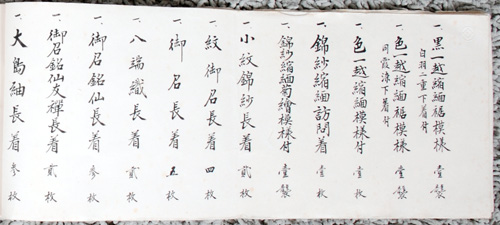 一、黒一越縮緬裾模様 壹襲
白羽二重下着付
一、色一越縮緬裾模様 壹襲
同霞涼下着付
一、色一越縮緬模様 壹枚
一、錦紗縮緬訪問着 壹枚
一、錦紗縮緬菊繪模様付 壹襲
一、小紋錦紗長着 貳枚
一、紋御召長着 四枚
一、御召長着 五枚
一、八端織長着 貳枚
一、御召銘仙長着 参枚
一、御召銘仙友禪長着 貳枚
一、大島紬長着 参枚